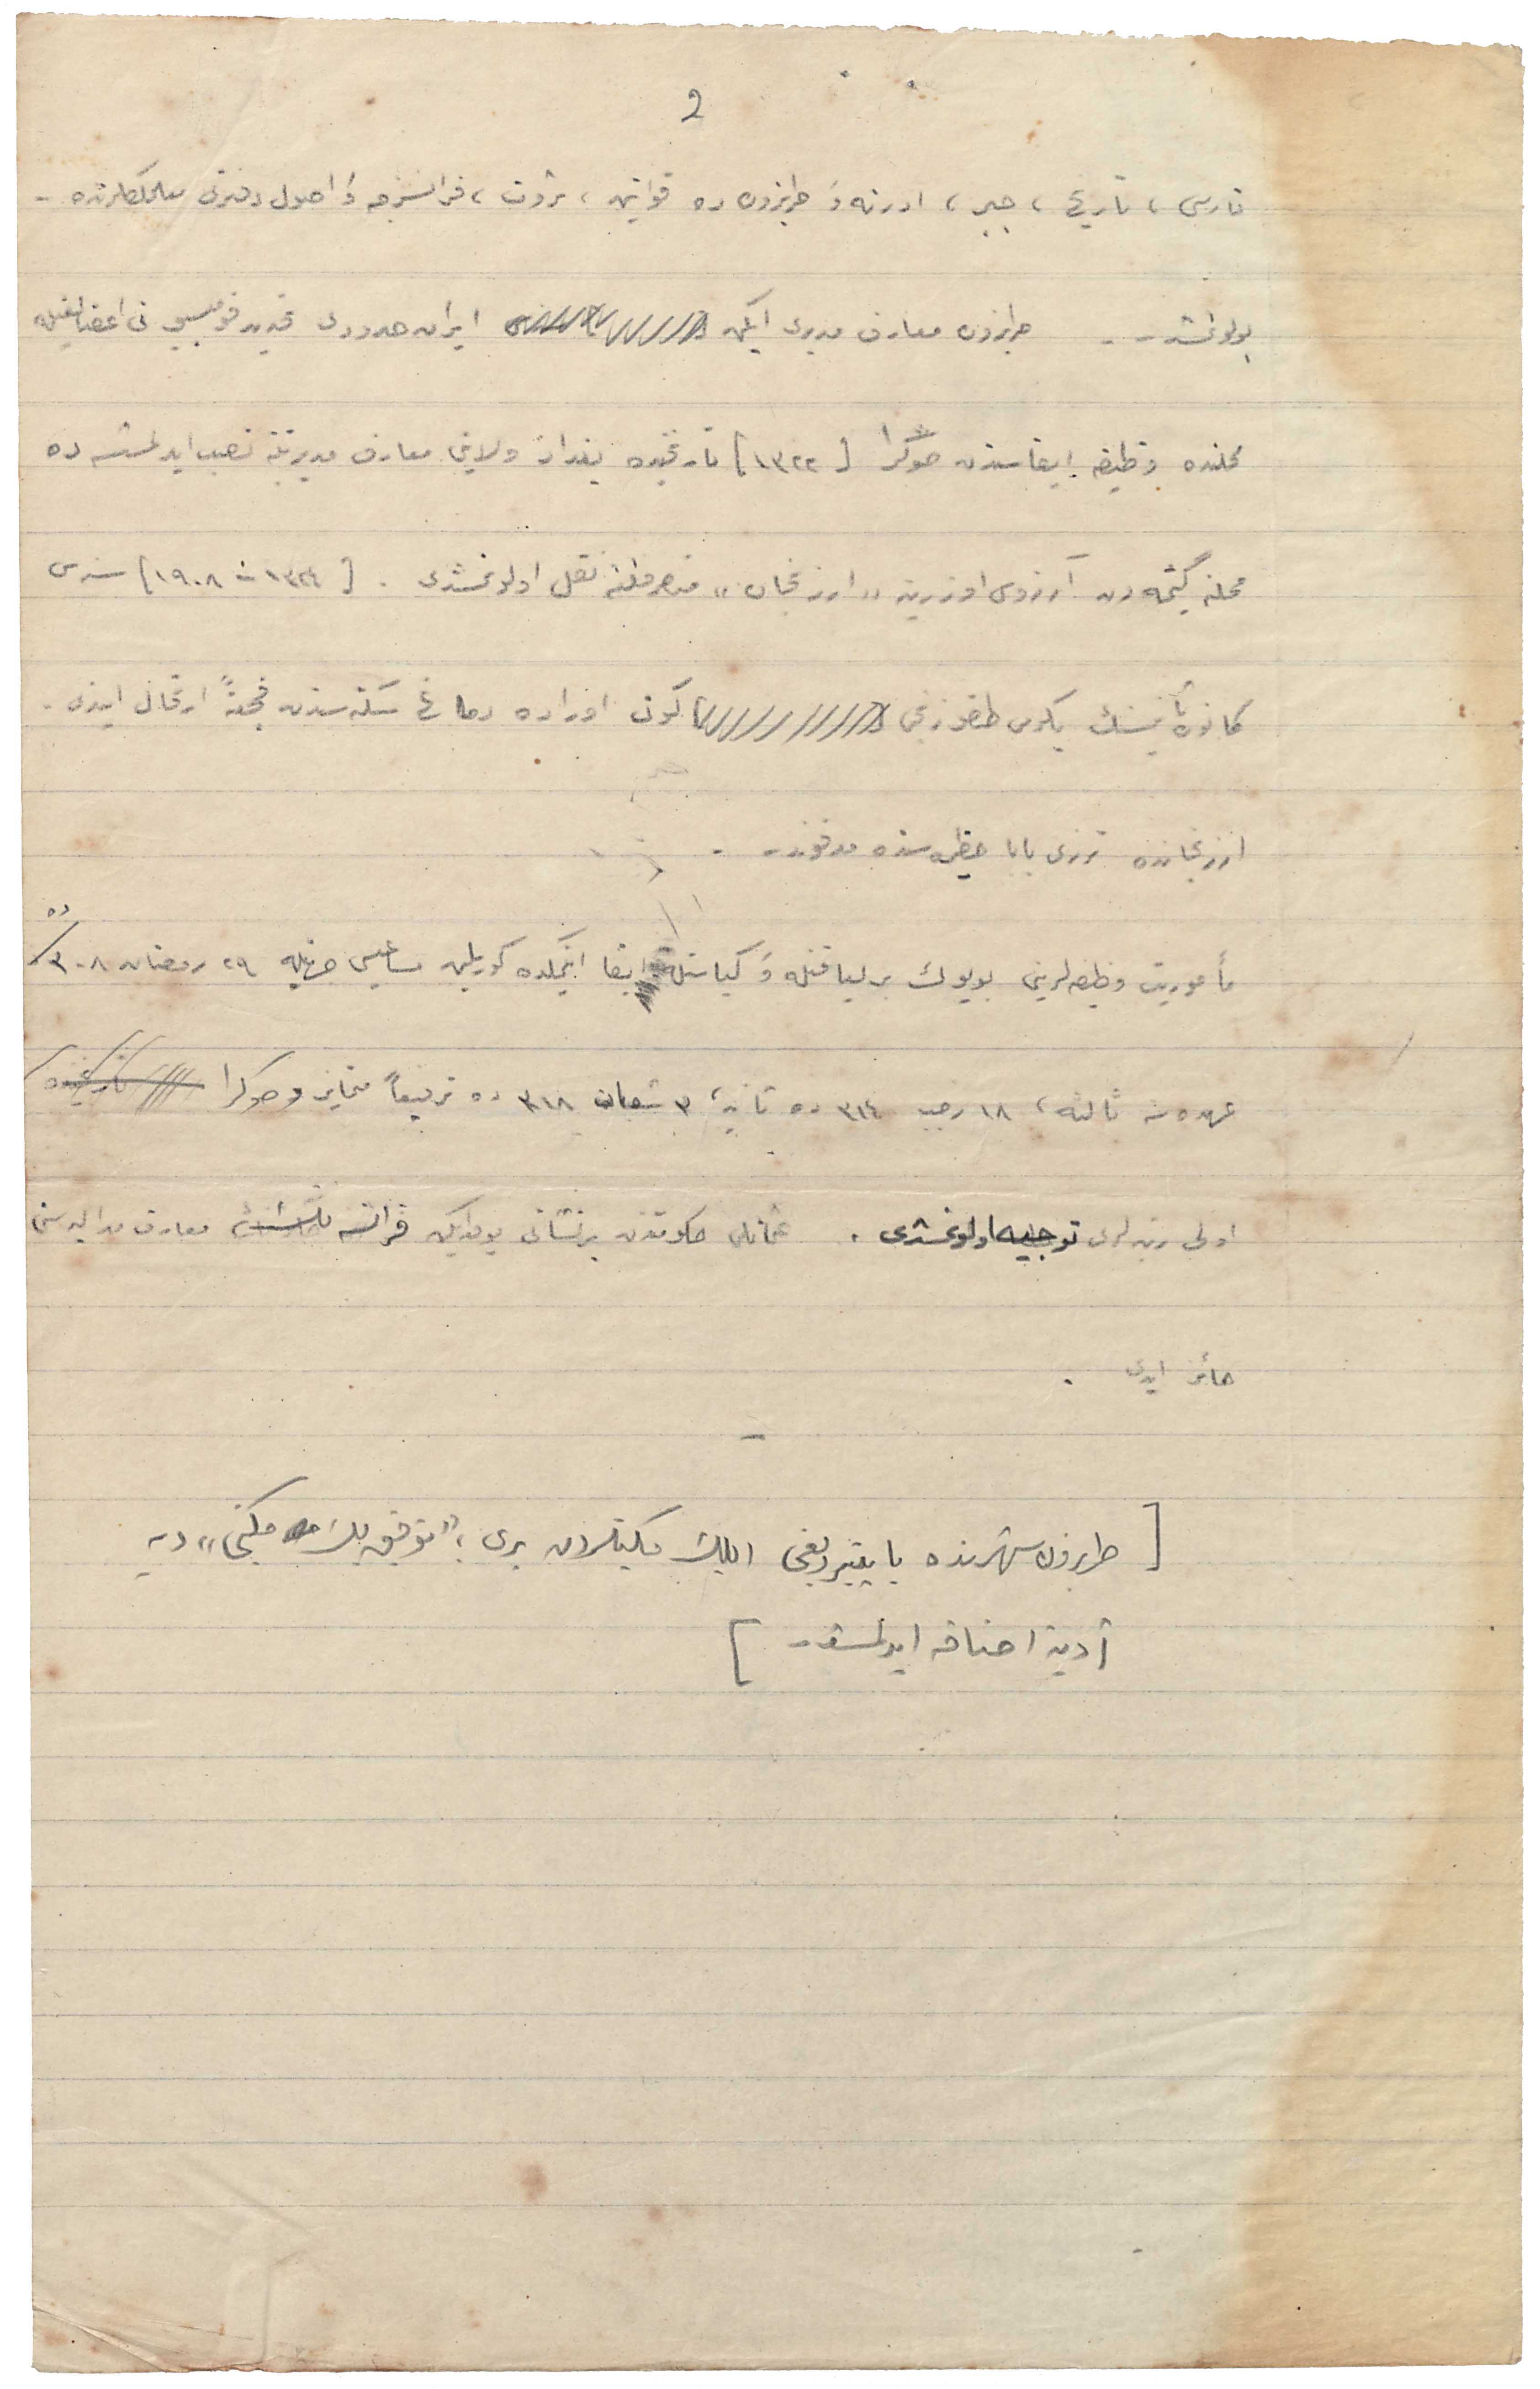 2
فارسی ، تاریخ ، جبر ، ادرنه وَ طربزون ده قوانین ، ثروت ، فرانسزجه وَ اصول دفتری معلملکلرنده
بولونمشدر . طربزون معارف مدیری ایکن ایران حدودی تحدید قومیسیونی اعضالغیله
محلنده وظیفه ایفاسندن صوکرا [١٣٢٢] تاریخنده بغداد ولایتی معارف مدیریتنه نصب ایدلمشسه ده
محلنه گیتمه دن آرزوسی اوزرینه «ارزنجان» متصرفلغنه نقل اولونمشدی . [١٣٢٤ - ١٩٠٨] سنه سی
کانون ثانیسنك یگرمی طقوزنجی کونی اوراده دماغی سکته سندن فجئةً ارتحال ایتدی .
ارزنجانده ترزی بابا حظیره سنده مدفوندر .
مأموریت وظیفه لرینی بویوك بر لیاقتله وَ کیاستله ایفا ایتمکده کوریلن مساعیسی جهتیله ٢٩ رمضان ٣٠٨ ده
عهده سنه ثالثه ، ١٨ رجب ٣١٤ ده ثانیه ، ٣ شعبان ٣١٨ ده ترفیعاً متمایز و صوکرا تاریخنده
اولی رتبه لری توجیه اولونمشدی . عثمانلی حکومتندن برنشانی یوغیکن فرانسه معارف مدالیه سنی
حائز ایدی .
[ طربزون شهرنده یاپدیردیغی ایلك مکتبلردن بری ؛ «توفیق بك مکتبی» دیه
آدینه اضافه ایدلمشدر ]